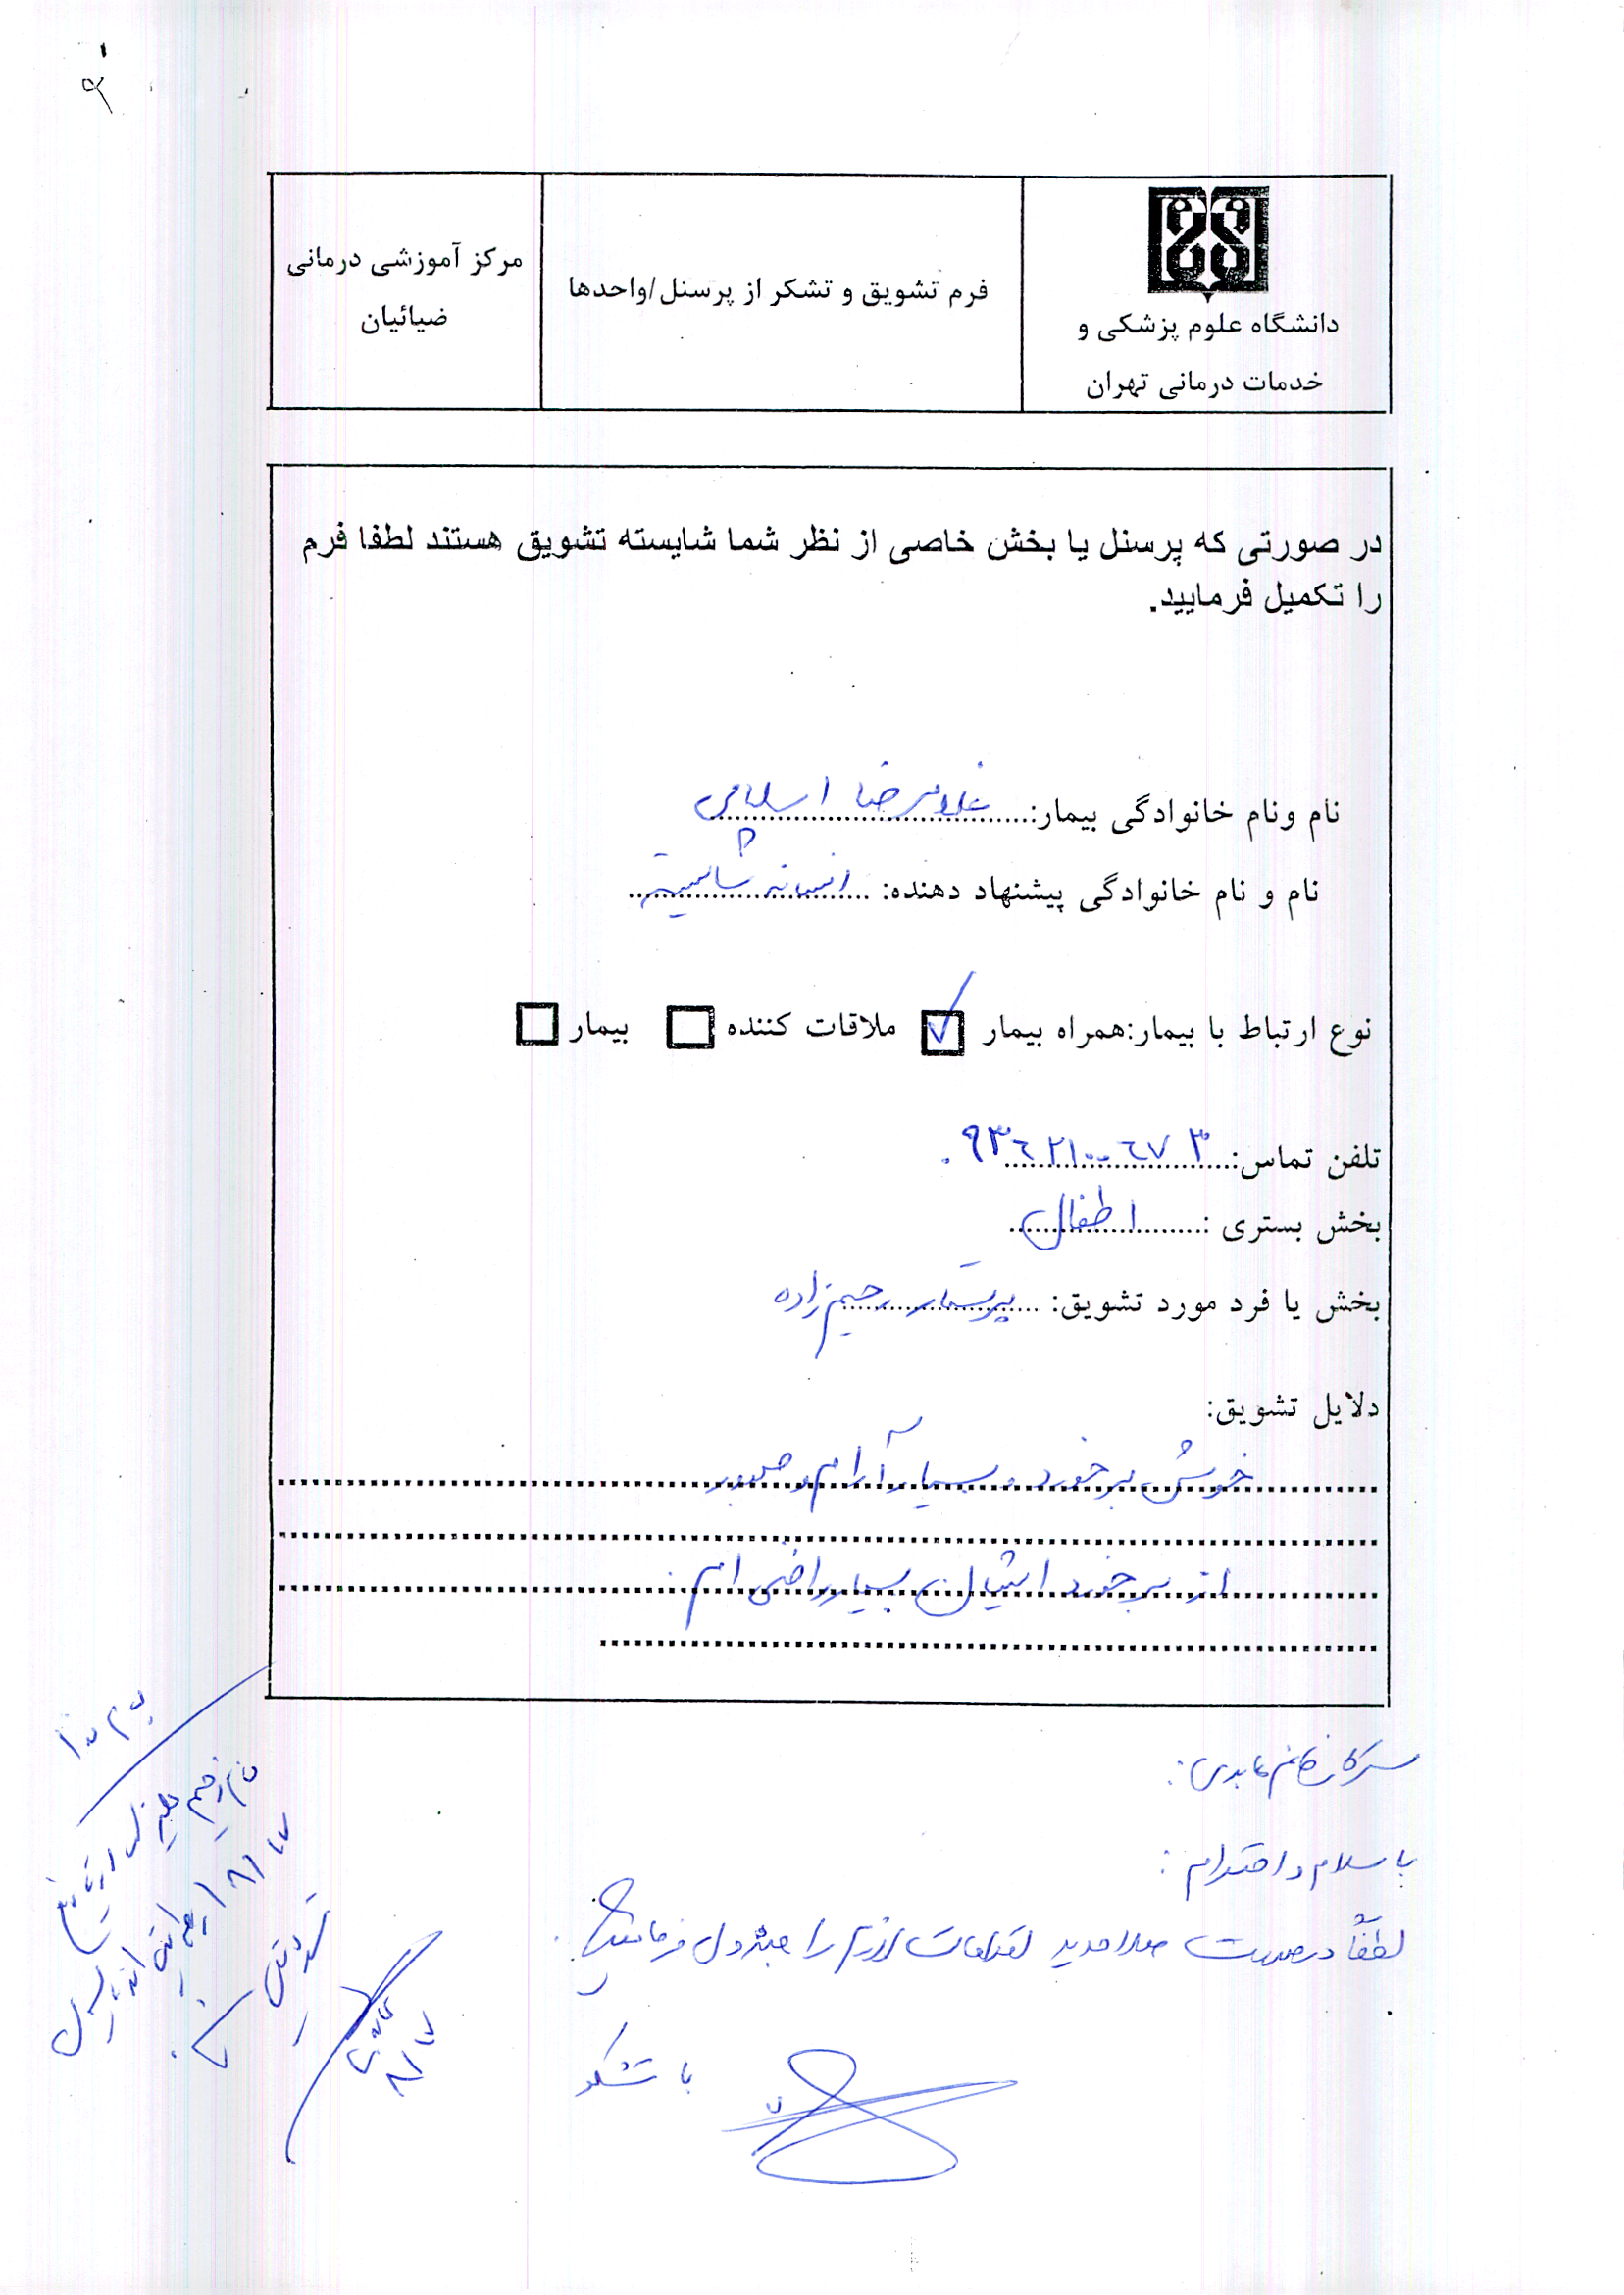 دانشگاه علوم پزشکی و
خدمات درمانی تهران
فرم تشویق و تشکر از پرسنل/واحدها
مرکز آموزشی درمانی
ضیائیان
در صورتی که پرسنل یا بخش خاصی از نظر شما شایسته تشویق هستند لطفا فرم
را تکمیل فرمایید.
نام ونام خانوادگی بیمار: غلامرضا اسلامی
نام و نام خانوادگی پیشنهاد دهنده: افسانه شایسته
نوع ارتباط با بیمار:همراه بیمار ✓ ملاقات کننده بیمار
تلفن تماس: ۰۹۳۶۲۱۰۰۶۷۳
بخش بستری : اطفال
بخش یا فرد مورد تشویق: پرستار رحیم زاده
دلایل تشویق:
خوش برخورد و بسیار آرام و صبور
از برخورد ایشان بسیار راضی ام.
سرکار خانم عابدی:
با سلام و احترام:
لطفاً درصورت صلاحدید اقدامات لازم را مبذول فرمائید.
با تشکر